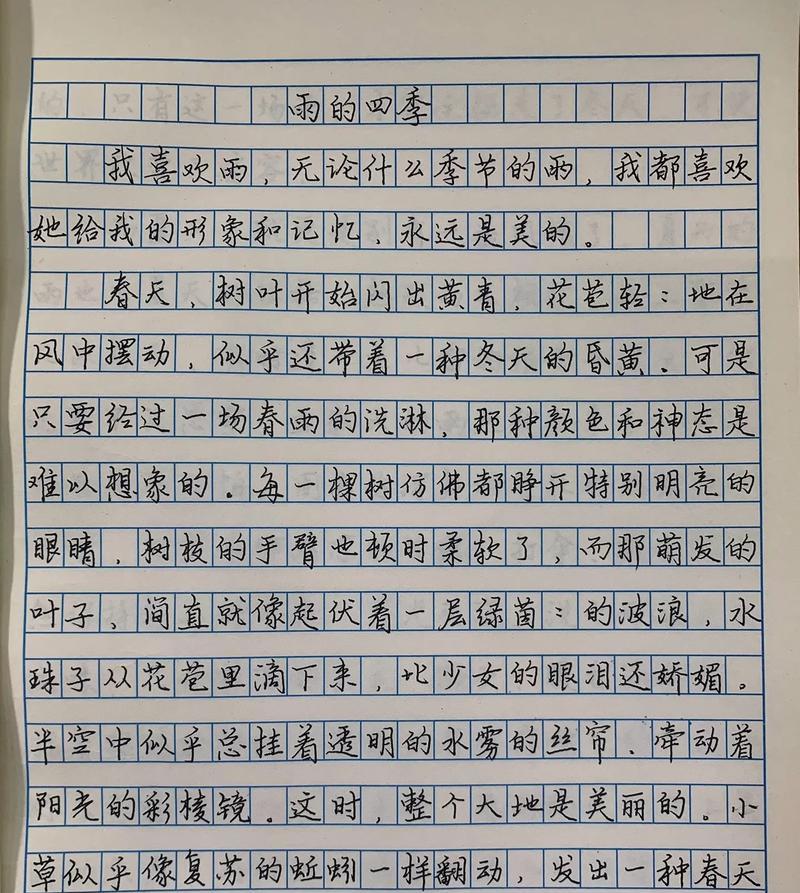 雨的四季
我喜欢雨，无论什么季节的雨，我都喜欢
她给我的形象和记忆，永远是美的。
春天，树叶开始闪出黄青，花苞轻：地在
风中摆动，似乎还带着一种冬天的昏黄。可是
只要经过一场春雨的洗淋，那种颜色和神态是
难以想象的。每一棵树仿佛都睁开特别明亮的
眼睛，树枝的手臂也顿时柔软了，而那萌发的
叶子，简直就像起伏着一层绿茵：的波浪，水
珠子从花苞里滴下来，比少女的眼泪还娇媚。
半空中似乎总挂着透明的水雾的丝帘，牵动着
阳光的彩棱镜。这时，整个大地是美丽的。小
草似乎像复苏的蚯蚓一样翻动，发出一种春天